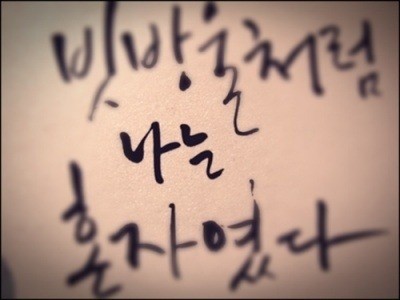 빗방울처럼
나는
혼자였다